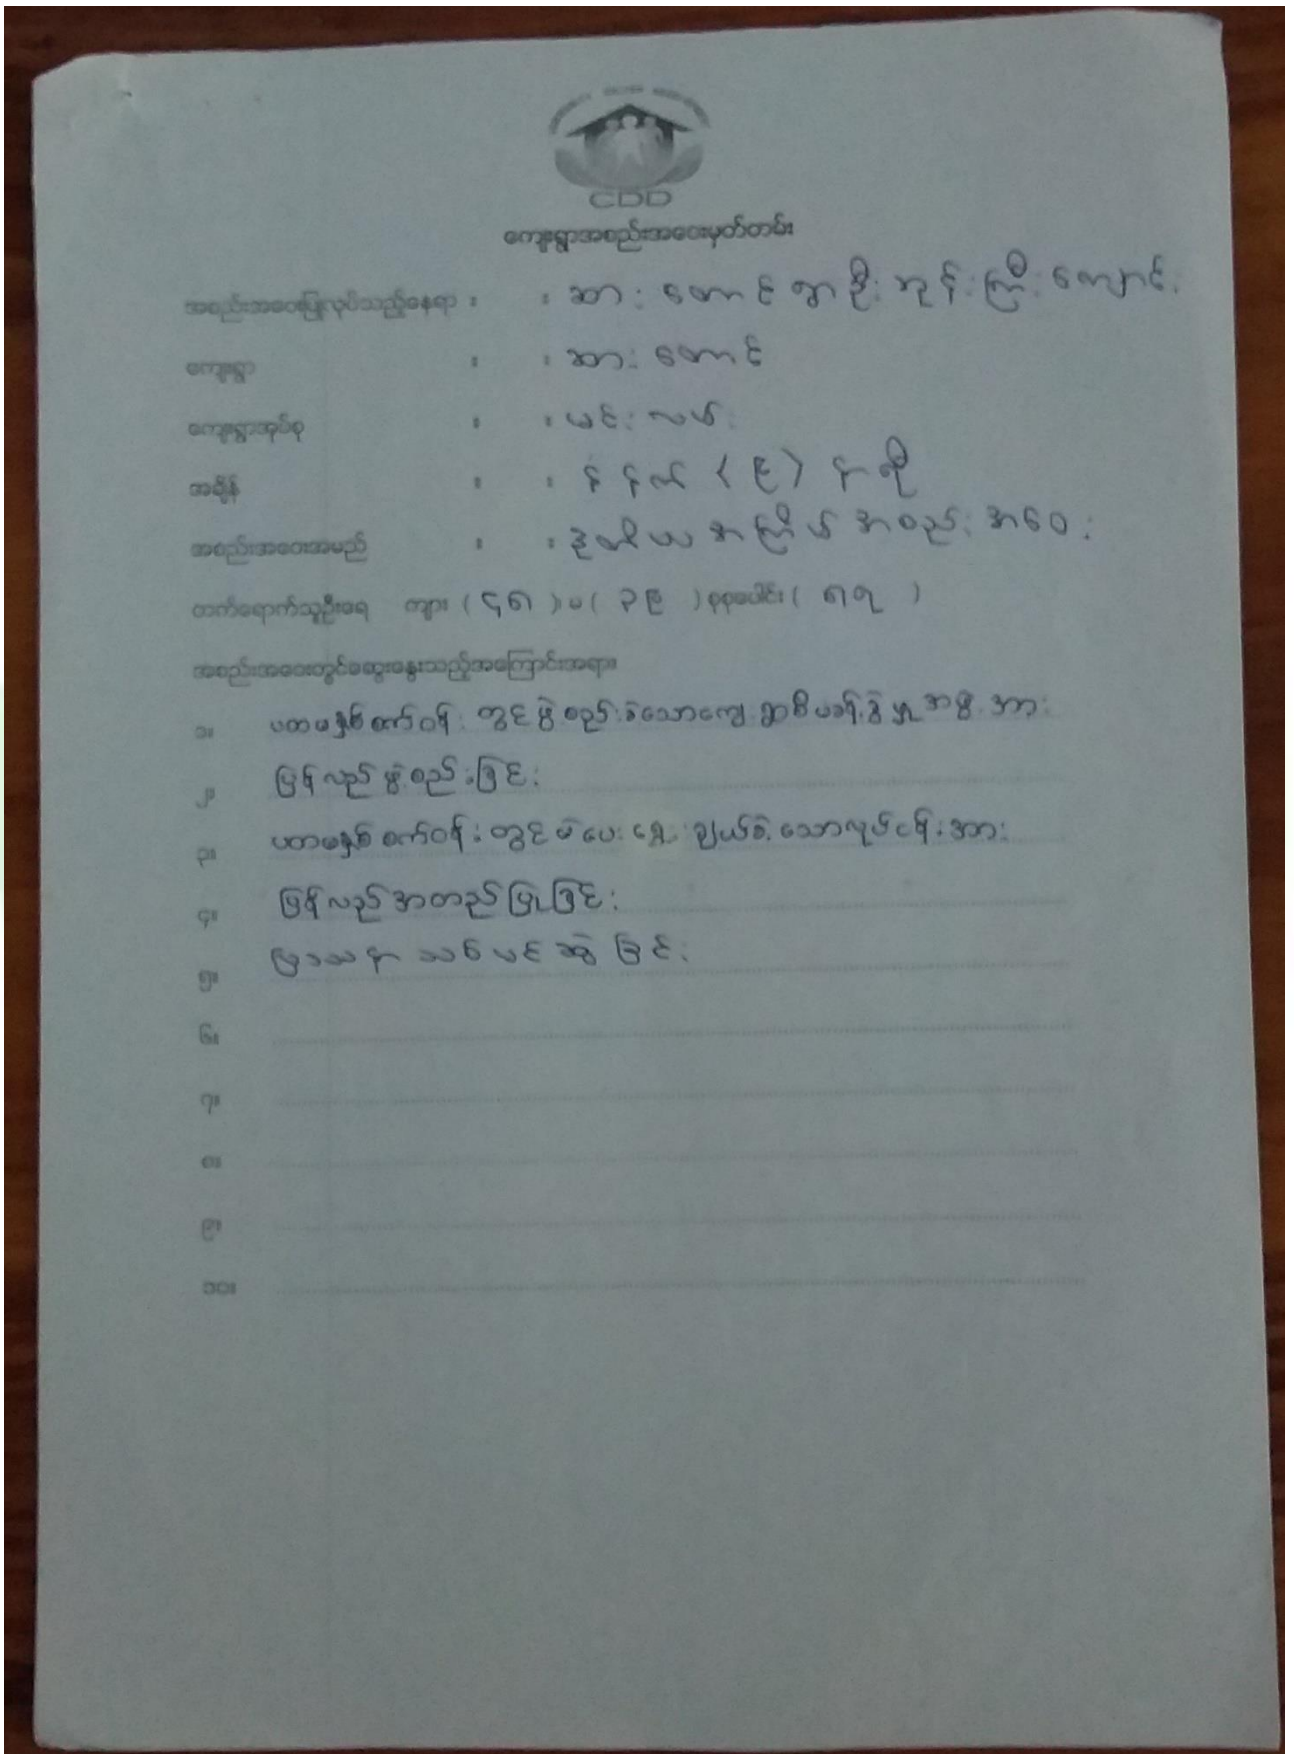 CDD
ကျေးရွာအစည်းအဝေးမှတ်တမ်း
အစည်းအဝေးပြုလုပ်သည့်နေရာ : : ဆားတောင်ရွာဦးဘုန်းကြီးကျောင်း
ကျေးရွာ : : ဆားတောင်
ကျေးရွာအုပ်စု : : မင်းလမ်း
အချိန် : : နံနက် (၉) နာရီ
အစည်းအဝေးအမည် : : ဒုတိယအကြိမ်အစည်းအဝေး
တက်ရောက်သူဦးရေ ကျား (၄၈) မ (၃၉) စုစုပေါင်း (၈၇)
အစည်းအဝေးတွင်ဆွေးနွေးသည့်အကြောင်းအရာ။
၁။ ပထမနှစ်စက်ဝန်းတွင်ဖွဲ့စည်းခဲ့သောကျေးရွာစီမံခန့်ခွဲမှုအဖွဲ့အား
၂။ ပြန်လည်ဖွဲ့စည်းခြင်း
၃။ ပထမနှစ်စက်ဝန်းတွင်မဲပေးရွေးချယ်ခဲ့သောလုပ်ငန်းအား
၄။ ပြန်လည်အတည်ပြုခြင်း
၅။ ပြဿနာသစ်ပင်ဆွဲခြင်း
၆။
၇။
၈။
၉။
၁၀။